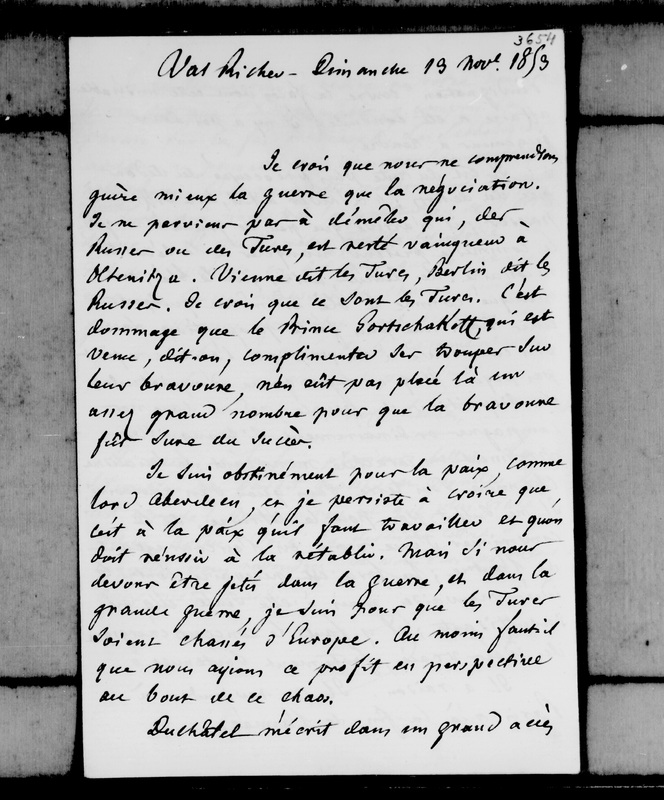 3654
Val Richer - Dimanche 13 Nove. 1853
Je crois que nous ne comprendrons
guère mieux la guerre que la négociation.
Je ne parviens pas à démêler qui, des
Russes ou des Turcs, est resté vainqueur à
Oltenitza. Vienne dit les Turcs, Berlin dit les
Russes. Je crois que ce sont les Turcs. C'est
dommage que le Prince Gortschakoff, qui est
venu, dit-on, complimenter ses troupes sur
leur bravoure, n'en eût pas placé là un
assez grand nombre pour que la bravoure
fût sure du succès.
Je suis obstinément pour la paix, comme
lord Aberdeen, et je persiste à croire que
c'est à la paix qu'il faut travailler et qu'on
doit réussir à la rétablir. Mais si nous
devons être jetés dans la guerre, et dans la
grande guerre, je suis pour que les Turcs
soient chassés d'Europe. Au moins faut-il
que nous ayions ce profit en perspective
au bout de ce chaos.
Duchâtel m'écrit dans un grand accès